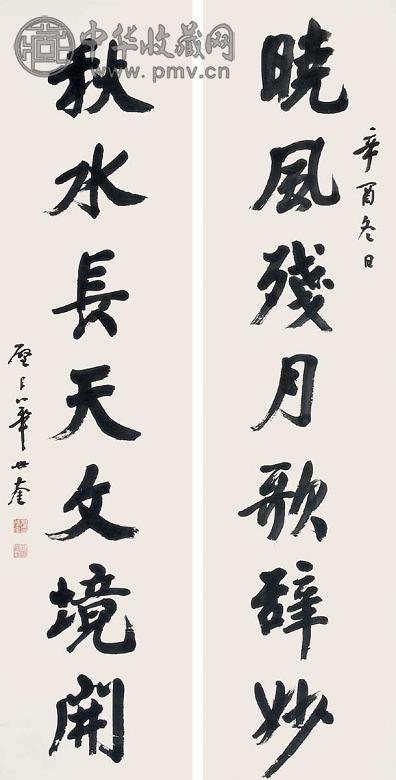 中华收藏网
www.pmv.cn
曉風殘月歌辭妙
辛酉冬日
秋水長天文境開
華世奎